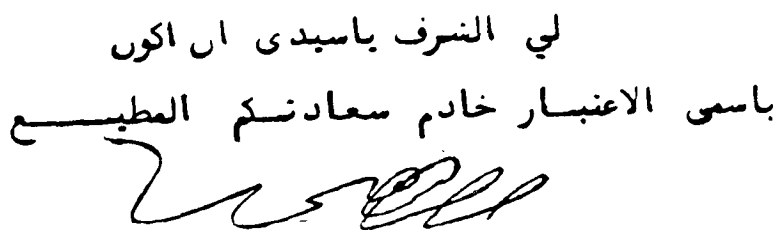 لي الشرف ياسيدى ان اكون
باسمى الاعتبار خادم سعادتكم المطيع